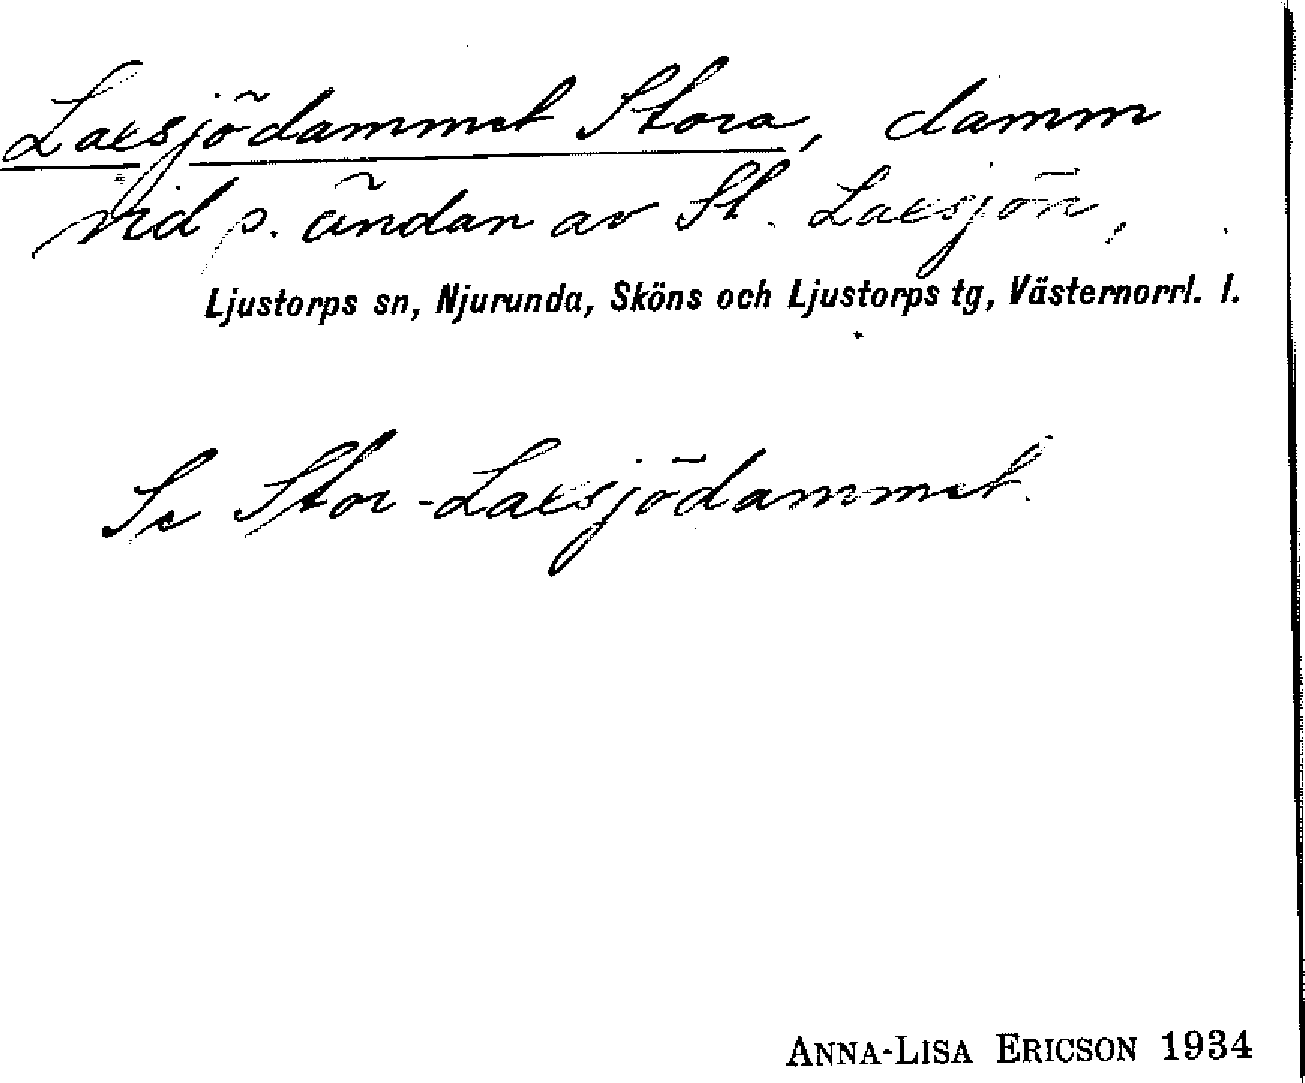 Laxsjödammet Stora, damm
vid s. ändan av St. Laxsjön,
Ljustorps sn, Njurunda, Sköns och Ljustorps tg, Västernorrl. l.
Se Stor-Laxsjödammet.
ANNA-LISA ERICSON 1934